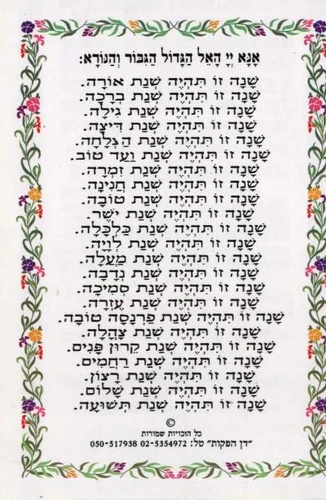 אָנָּא יְיָ הָאֵל הַגָּדוֹל הַגִּבּוֹר וְהַנּוֹרָא:
שָׁנָה זוֹ תִּהְיֶה שְׁנַת אוֹרָה.
שָׁנָה זוֹ תִּהְיֶה שְׁנַת בְּרָכָה.
שָׁנָה זוֹ תִּהְיֶה שְׁנַת גִּילָה.
שָׁנָה זוֹ תִּהְיֶה שְׁנַת דִּיצָה.
שָׁנָה זוֹ תִּהְיֶה שְׁנַת הַצְלָחָה.
שָׁנָה זוֹ תִּהְיֶה שְׁנַת וַעַד טוֹב.
שָׁנָה זוֹ תִּהְיֶה שְׁנַת זִמְרָה.
שָׁנָה זוֹ תִּהְיֶה שְׁנַת חֲנִינָה.
שָׁנָה זוֹ תִּהְיֶה שְׁנַת טוֹבָה.
שָׁנָה זוֹ תִּהְיֶה שְׁנַת יֹשֶׁר.
שָׁנָה זוֹ תִּהְיֶה שְׁנַת כַּלְכָּלָה.
שָׁנָה זוֹ תִּהְיֶה שְׁנַת לְוָיָה.
שָׁנָה זוֹ תִּהְיֶה שְׁנַת מַעְלָה.
שָׁנָה זוֹ תִּהְיֶה שְׁנַת נְדָבָה.
שָׁנָה זוֹ תִּהְיֶה שְׁנַת סְמִיכָה.
שָׁנָה זוֹ תִּהְיֶה שְׁנַת עֶזְרָה.
שָׁנָה זוֹ תִּהְיֶה שְׁנַת פַּרְנָסָה טוֹבָה.
שָׁנָה זוֹ תִּהְיֶה שְׁנַת צָהֳלָה.
שָׁנָה זוֹ תִּהְיֶה שְׁנַת קֵרוּן פָּנִים.
שָׁנָה זוֹ תִּהְיֶה שְׁנַת רַחֲמִים.
שָׁנָה זוֹ תִּהְיֶה שְׁנַת רָצוֹן.
שָׁנָה זוֹ תִּהְיֶה שְׁנַת שָׁלוֹם.
שָׁנָה זוֹ תִּהְיֶה שְׁנַת תְּשׁוּעָה.
©
כל הזכויות שמורות
"דן הפקות" טל: 02-5354972 050-517938